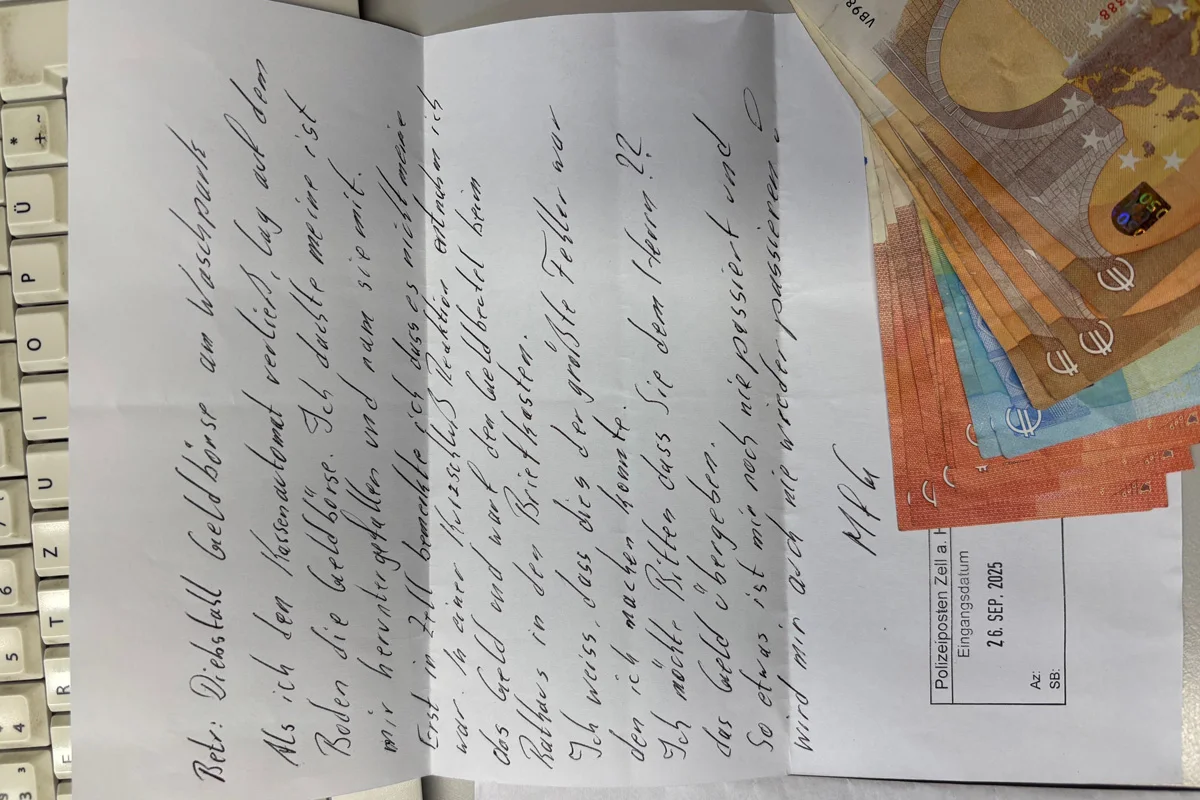 Betr: Diebstahl Geldbörse am Waschpark
Als ich den Kassenautomat verließ, lag auf dem
Boden die Geldbörse. Ich dachte meine ist
mir heruntergefallen und nam sie mit.
Erst in Zell bemerkte ich dass es nicht meine
war. In einer Kurzschluß Reaktion entnahm ich
das Geld und warf den Geldbeutel beim
Rathaus in den Briefkasten.
Ich weiss, dass dies der größte Fehler war
den ich machen konnte.
Ich möchte Bitten dass Sie dem Herrn ??
das Geld übergeben.
So etwas ist mir noch nie passiert und
wird mir auch nie wieder passieren
Polizeiposten Zell a. H
Eingangsdatum
26. SEP. 2025
Az:
SB:
VB98
388
050
€
€
€
€
* + ~
Ü
P
O
I
U
Z
T
R
E
7 /
6
5
4
3